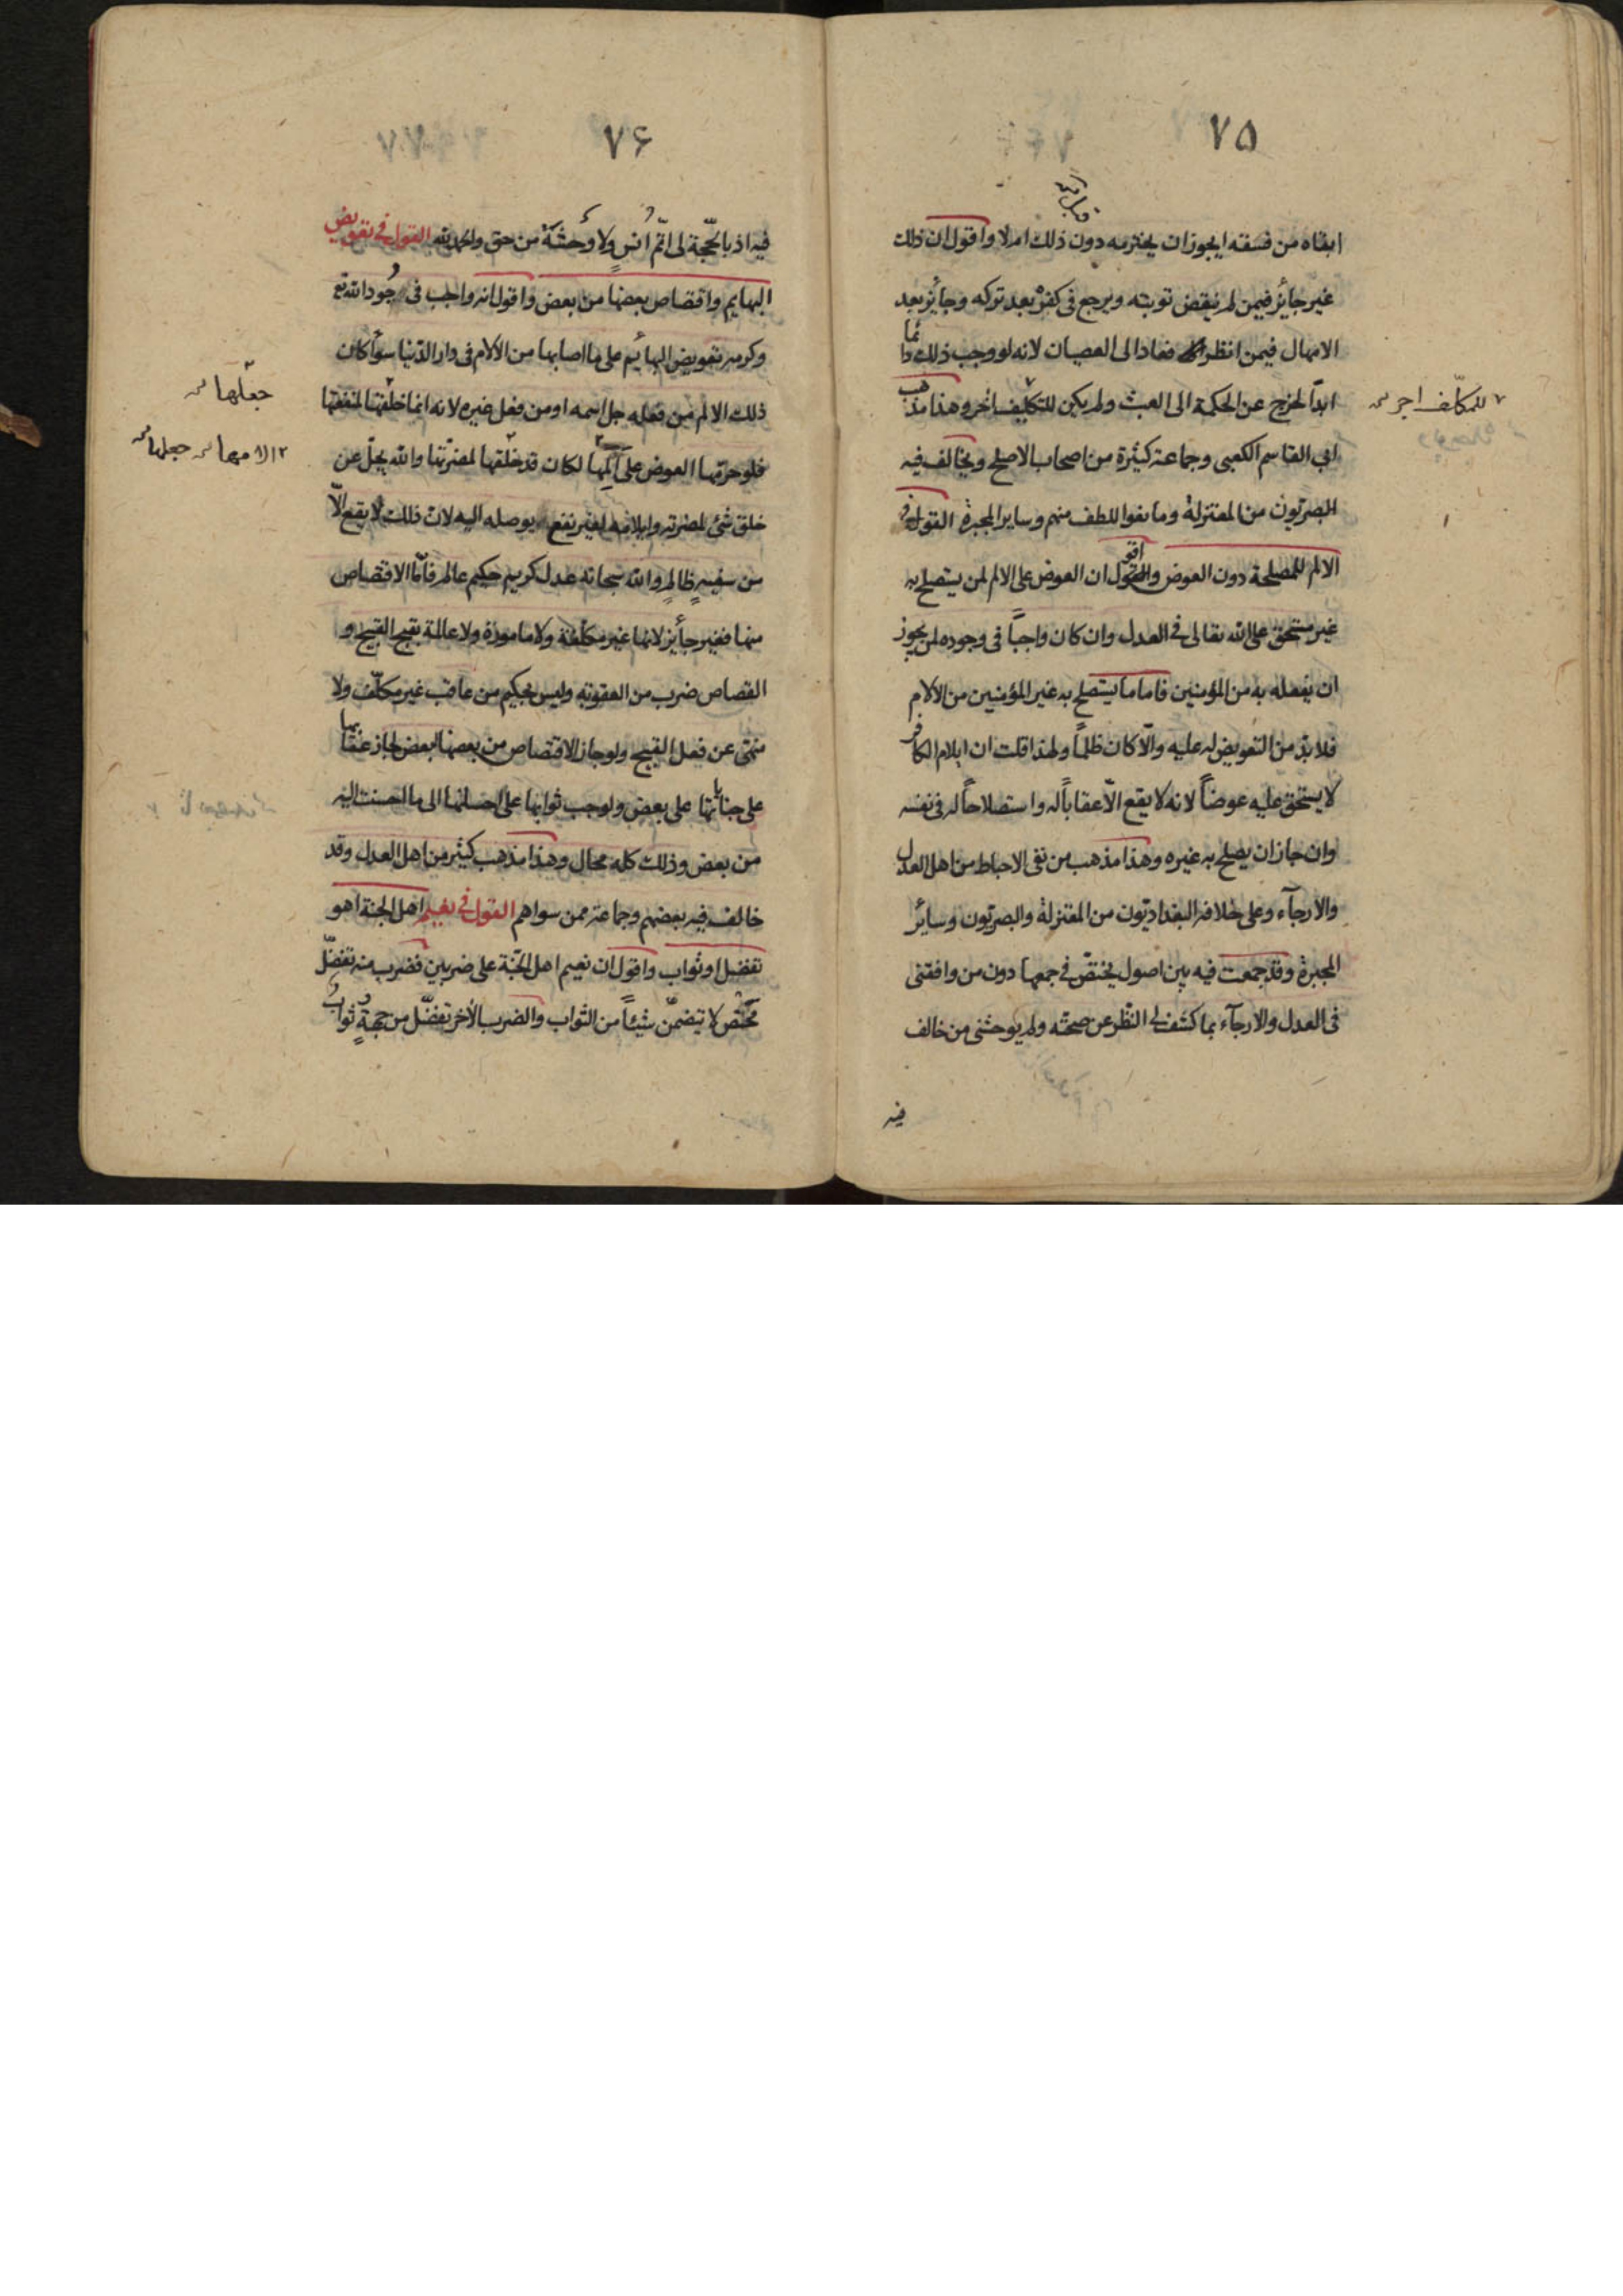 ٧٥
قبل
ابقاه من فسقه ايجوز ان يخترمه دون ذلك ام لا واقول ان ذلك
غير جائز فيمن لم ينقض توبته ويرجع فى كفره بعد تركه وجائز بعد
الامهال فيمن انظر فعاد الى العصيان لانه لو وجب ذلك دائما
ابدًا لخرج عن الحكمة الى العبث ولم يكن للتكليف اخر وهذا مذهب
للمكلّف اجر
ابى القاسم الكعبى وجماعة كثيرة من اصحاب الاصلح ويخالف فيه
البصريّون من المعتزلة ومانعوا اللطف منهم وساير المجبرة القول فى
الالم للمصلحة دون العوض واقول ان العوض على الالم لمن يستصلح به
غير مستحق على الله تعالى فى العدل وان كان واجبًا فى وجوده لمن يجوز
ان يفعله به من المؤمنين فاما ما يستصلح به غير المؤمنين من الآلام
فلا بدّ من التعويض له عليه والّا كان ظلمًا ولهذا قلت ان ايلام الكافر
لا يستحق عليه عوضًا لانه لا يقع الّا عقابًا له واستصلاحًا له فى نفسه
وان جاز ان يصلح به غيره وهذا مذهب من نفى الاحباط من اهل العدل
والارجآء وعلى خلافه البغداديّون من المعتزلة والبصريّون وسائر
المجبرة وقد جمعت فيه بين اصول يختصّ فى جمعها دون من وافقنى
فى العدل والارجآء بما كشف لى النّظر عن صحته ولم يوحشنى من خالف
فيه
٧۶
فيه اذ بالحجّة لى اتمّ انس ولا وحشة من حق والحمد لله القول فى تعويض
البهايم واقتصاص بعضها من بعض واقول انه واجب فى جود الله تع
وكرمه تعويض البهائيم على ما اصابها من الآلام فى دار الدّنيا سوآء كان
ذلك الالم من فعله جل اسمه او من فعل غيره لانه انما خلقها لمنفعتها
جعلها
فلو حرمها العوض على المها لكان قد خلقها لمضرّتها والله يجلّ عن
جعلها
خلق شئ لمضرته وايلامه لغير نفع يوصله اليه لان ذلك لا يقع الّا
من سفيه ظالم والله سبحانه عدل كريم حكيم عالم فامّا الاقتصاص
منها فغير جائز لانها غير مكلّفة ولا مامورة ولا عالمة بقبح القبيح و
القصاص ضرب من العقوبة وليس بحكيم من عاقب غير مكلّف ولا
منهى عن فعل القبيح ولو جاز الاقتصاص من بعضها لبعض لجاز عقابها
على جناياتها على بعض ولوجب ثوابها على احسانها الى ما احسنت اليه
من بعض وذلك كله محال وهذا مذهب كثير من اهل العدل وقد
خالف فيه بعضهم وجماعة ممن سواهم القول فى نعيم اهل الجنة اهو
تفضل او ثواب واقول ان نعيم اهل الجنّة على ضربين فضرب منه تفضّل
محض لا يتضمّن شيئًا من الثواب والضرب الاخر تفضّل من جهة ثواب